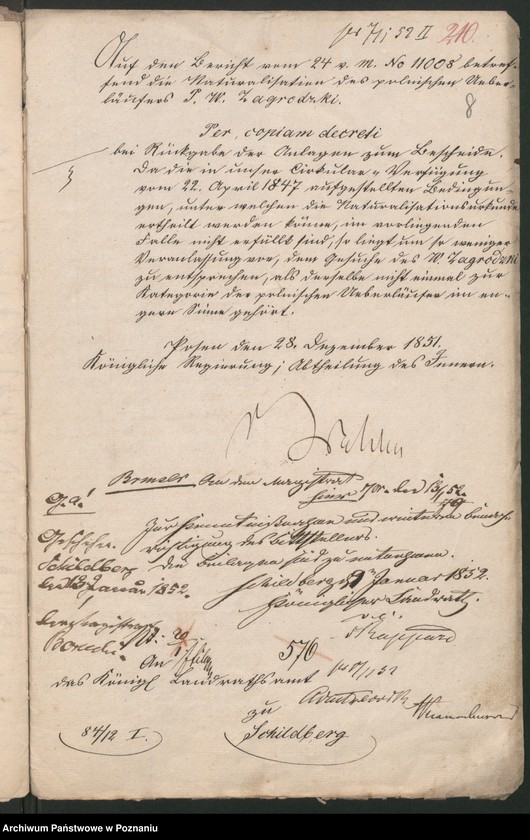 pr 7/1 52 II 210.
8
Auf den Bericht vom 24 v. m. No 11008 betref-
fend die Naturalisation des polnischen Ueber-
läufers P. W. Zagrodzki.
Per copiam decreti
bei Rückgabe der Anlagen zum Bescheide.
Da die in unser Cirkular-Verfügung
vom 22. April 1847 aufgestellten Bedingun-
gen, unter welchen die Naturalisationsurkunde
ertheilt werden könne, im vorliegenden
Falle nicht erfüllt sind, so liegt um so weniger
Veranlassung vor, dem Gesuche des W. Zagrodzki
zu entsprechen, als derselbe nicht einmal zur
Kategorie der polnischen Ueberläufer im en-
gern Sinne gehört.
Posen den 28. Dezember 1851.
Königliche Regierung; Abtheilung des Innern.
An den Magistrat
hier
Zur Kenntnißnahme und weiteren
des Bittstellers.
Die Beilagen sind zu
Schildberg Januar 1852.
Königlicher Landrath.
Geschehen
Schildberg
Januar 1852.
Der Magistrat
576
An
das Königl Landrathsamt
zu
Schildberg
84/12 I.
Archiwum Państwowe w Poznaniu